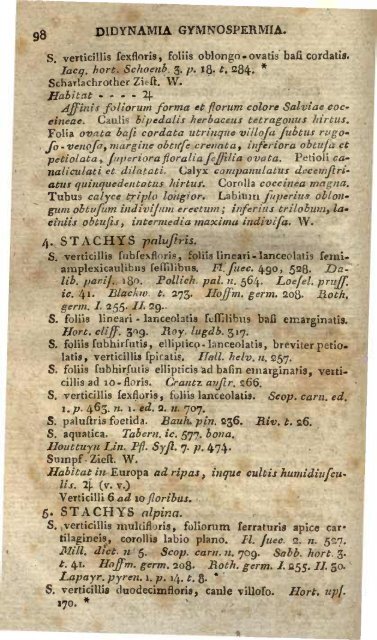 98 DIDYNAMIA GYMNOSPERMIA.
S. verticillis ſexfloris, foliis oblongo-ovatis baſi cordatis.
Iacq. hort. Schoenb. 3. p. 18. t. 284. *
Scharlachrother Zieſt. W.
Habitat - - - - ♃
Affinis foliorum forma et florum colore Salviae coc-
cineae. Caulis bipedalis herbaceus tetragonus hirtus.
Folia ovata baſi cordata utrinque villoſa ſubtus rugo-
ſo-venoſa, margine obtuſe crenata, inferiora obtuſa et
petiolata, ſuperiora floralia ſeſſilia ovata. Petioli ca-
naliculati et dilatati. Calyx campanulatus decemſtri-
atus quinquedentatus hirtus. Corolla coccinea magna.
Tubus calyce triplo longior. Labium ſuperius oblon-
gum obtuſum indiviſum erectum; inferius trilobum, la-
ciniis obtuſis, intermedia maxima indiviſa. W.
4. STACHYS paluſtris.
S. verticillis ſubſexfloris, foliis lineari-lanceolatis ſemi-
amplexicaulibus ſeſſilibus. Fl. ſuec. 490, 528. Da-
lib. pariſ. 180. Pollich. pal. n. 564. Loeſel. pruſſ.
ic. 41. Blackw. t. 273. Hoffm. germ. 208. Roth.
germ. I. 255. II. 29.
S. foliis lineari-lanceolatis ſeſſilibus baſi emarginatis.
Hort. cliff. 309. Roy. lugdb. 317.
S. foliis ſubhirſutis, elliptico-lanceolatis, breviter petio-
latis, verticillis ſpicatis. Hall. helv. n. 257.
S. foliis ſubhirſutis ellipticis ad baſin emarginatis, verti-
cillis ad 10-floris. Crantz auſtr. 266.
S. verticillis ſexfloris, foliis lanceolatis. Scop. carn. ed.
1. p. 463. n. 1. ed. 2. n. 707.
S. paluſtris foetida. Bauh. pin. 236. Riv. t. 26.
S. aquatica. Tabern. ic. 577. bona.
Houttuyn Lin. Pfl. Syſt. 7. p. 474.
Sumpf-Zieſt. W.
Habitat in Europa ad ripas, inque cultis humidiuſcu-
lis. ♃ (v. v.)
Verticilli 6 ad 10 floribus.
5. STACHYS alpina.
S. verticillis multifloris, foliorum ſerraturis apice car-
tilagineis, corollis labio plano. Fl. ſuec. 2. n. 527.
Mill. dict. n. 5. Scop. carn. n. 709. Sabb. hort. 3.
t. 41. Hoffm. germ. 208. Roth. germ. I. 255. II. 30.
Lapayr. pyren. 1. p. 14. t. 8. *
S. verticillis duodecimfloris, caule villoſo. Hort. upſ.
170. *